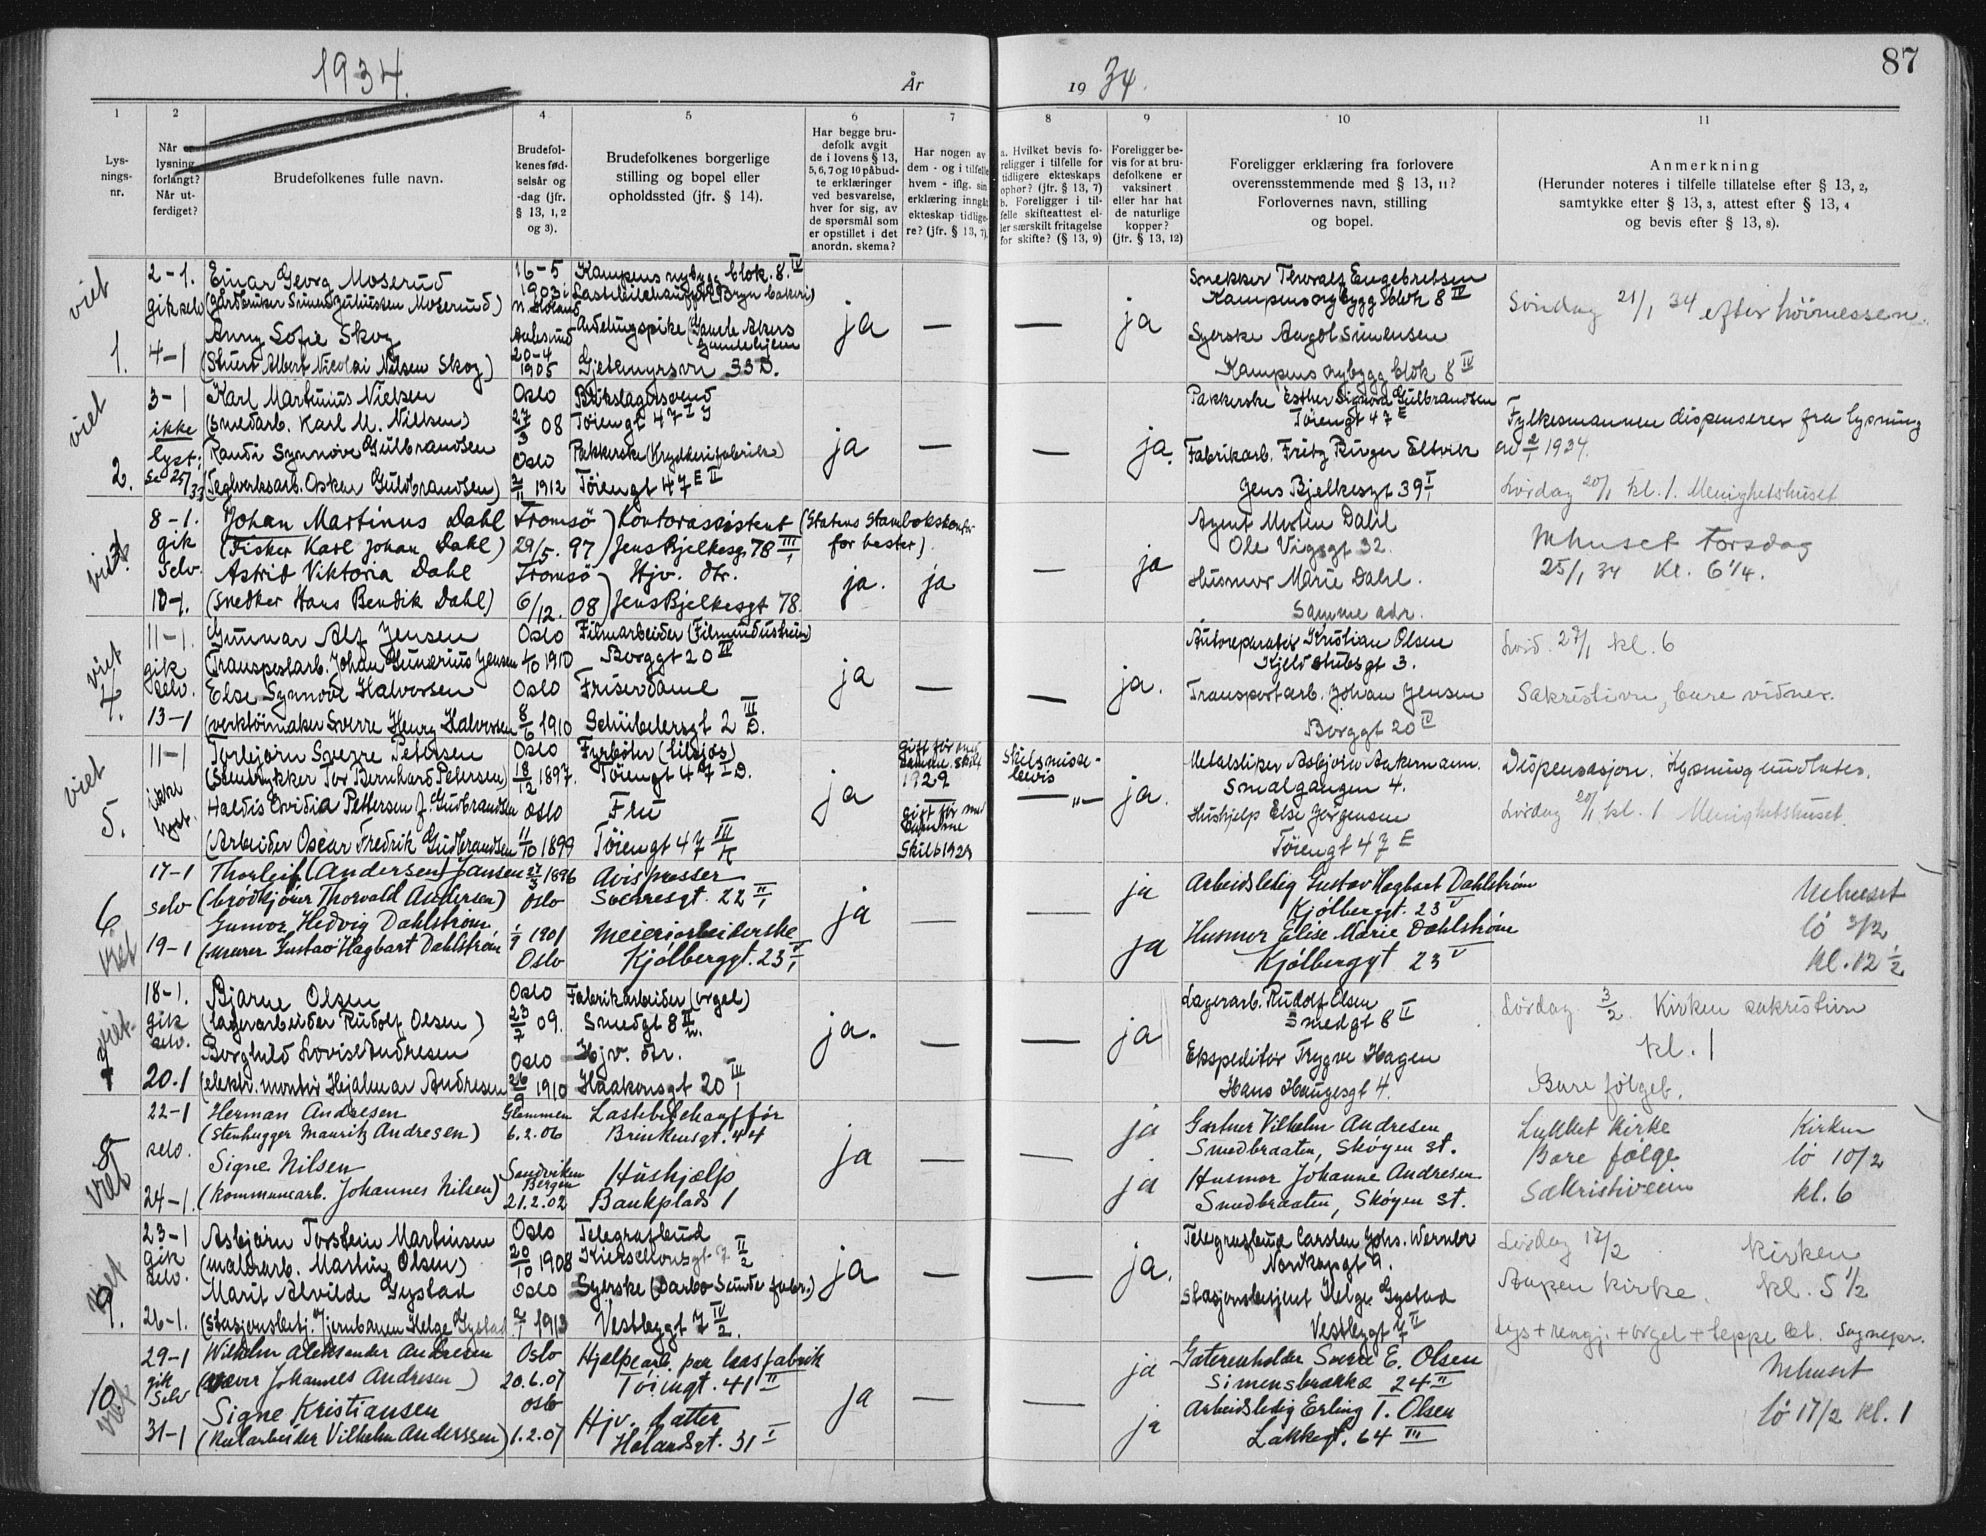 87
1934.
År
19 34.
1
2
4
5
6
7
8
9
10
11
Lys-
nings-
nr.
Når
lysning
forlangt?
Når ut-
ferdiget?
Brudefolkenes fulle navn.
Brudefol-
kenes fød-
selsår og
-dag (jfr.
§ 13, 1, 2
og 3).
Brudefolkenes borgerlige
stilling og bopel eller
opholdssted (jfr. § 14).
Har begge bru-
defolk avgit
de i lovens § 13,
5, 6, 7 og 10 påbud-
te erklæringer
ved besvarelse,
hver for sig, av
de spørsmål som
er opstillet i det
anordn. skema?
Har nogen av
dem - og i tilfelle
hvem - iflg. sin
erklæring inngåt
ekteskap tidlige-
re? (jfr. § 13, 7).
a. Hvilket bevis fo-
religger i tilfelle for
tidligere ekteskaps
ophør? (jfr. § 13, 7)
b. Foreligger i til-
felle skifteattest el-
ler særskilt fritagelse
for skifte? (§ 13, 9)
Foreligger be-
vis for at bru-
defolkene er
vaksinert
eller har hat
de naturlige
kopper?
(jfr. § 13, 12)
Foreligger erklæring fra forlovere
overensstemmende med § 13, 11?
Forlovernes navn, stilling
og bopel.
Anmerkning
(Herunder noteres i tilfelle tillatelse efter § 13, 2,
samtykke efter § 13, 3, attest efter § 13, 4
og bevis efter § 13, 8).
viet
1.
2-1.
gik selv
4-1
Einar Georg Moserud
(Gårdbruker Simen Juliussen Moserud)
Anny Sofie Skog
(Stuert Albert Nicolai Nilsen Skog)
16-5
1903 i
20-4
1905
Kampens nybygg blok. 8. IV
Gamlehjem
Gjetemyrsvn 33 D.
ja
—
—
ja
Snekker Thoralf Engebretsen
Kampens nybygg blok 8 IV
Syerske Aagot Simensen
Kampens nybygg blok 8 IV
Søndag 21/1 34 efter høimessen.
viet
2.
3-1
ikke
lyst;
se 25/33
Karl Martinius Nielsen
(Smedarb. Karl M. Nielsen)
Randi Synnøve Gulbrandsen
(Teglverksarb. Oskar Guldbrandsen)
Oslo
27/3 08
Oslo
2/11 1912
Blikslagersvend
Tøiengt 47 I
Pakkerske (Krydderifabrikk)
Tøiengt 47 E II
ja
—
—
ja.
Pakkerske Esther Sigurd Gulbrandsen
Tøiengt 47 E
Fabrikarb. Fritz Ringer Eltvik
Jens Bjelkesgt 39 I
Fylkesmannen dispenserer fra lysning
av 2/1 1934.
Lørdag 20/1 kl. 1. Menighetshuset
viet
3.
8-1.
gik
selv.
10-1.
Johan Martinus Dahl
(Fisker Karl Johan Dahl)
Astrid Viktoria Dahl
(Snedker Hans Bendik Dahl)
Tromsö
29/5. 97
Tromsö
6/12. 08
Kontorassistent (Statens Stambokskontor
Jens Bjelkesg. 78 III for hester).
Hjv. dtr.
Jens Bjelkesgt 78.
ja.
ja
—
ja
Agent Morten Dahl
Ole Vigsgt 32.
Husmor Marie Dahl.
Samme adr.
Mhuset Torsdag
25/1 34 Kl. 6 1/4.
viet
4.
11-1.
gik
selv.
13-1
Gunnar Alf Jensen
(Transportarb. Johan Gunerius Jensen
Else Synnøve Halvorsen
(verktöimaker Sverre Henry Halvorsen
Oslo
4/10 1910
Oslo
8/6 1910
Filmarbeider (Filmindustrien)
Borggt 20 IV
Friserdame
Schübelersgt 2 III D.
ja
—
—
ja.
Autoreparatör Kristian Olsen
Kjeld Stubsgt 3.
Transportarb. Johan Jensen
Borggt 20 IV
Lørd. 27/1 kl. 6
Sakristivie, bare vidner.
viet
5.
11-1
ikke
lyst.
Torbjørn Sverre Petersen
(Stentrykker Tor Bernhard Petersen)
Haldis Ovidia Pettersen f. Gudbrandsen
(Arbeider Oscar Fredrik Gudbrandsen
Oslo
18/12 1897.
Oslo
11/10 1899
Fyrbøter (tilsjøs)
Tøiengt 47 I D.
Fru
Tøiengt 47 III
ja
gift før med
samme. Skilt
1929
gift før med
samme
Skilt 1929
Skilsmisse-
bevis
— „ —
ja.
Metalsliper Asbjørn Ankermann.
Smalgangen 4.
Hushjelp Else Jørgensen
Tøiengt 47 E
Dispensasjon. Lysning undlates.
Lørdag 20/1 kl. 1 Menighetshuset.
6
viet
17-1
selv
19-1
Thorleif (Andersen) Jansen
(brødkjører Thorvald Andersen)
Gunvor Hedvig Dahlstrøm
(murer Gustav Hagbart Dahlstrøm
27/3 1896
Oslo
1/9 1901
Oslo
Avispresser
Sverresgt. 22 II
Meieriarbeiderske
Kjølberggt. 23 V
ja
—
—
ja
ja
Arbeidsledig Gustav Hagbart Dahlstrøm
Kjølberggt. 23 V
Husmor Elise Marie Dahlstrøm
Kjølberggt 23 V
Mhuset
lö 3/2
kl. 12 1/2
viet.
7
18-1.
gik
selv.
20.1
Bjarne Olsen
(lagerarbeider Rudolf Olsen)
Borghild Lovise Andresen
(elektr. montör Hjalmar Andresen
Oslo
23/7 09.
Oslo
26/9 1910
Fabrikarbeider (orgel)
Smedgt 8 II
Hjv. dtr.
Haakonsgt 20 III
ja.
—
—
ja
Lagerarb. Rudolf Olsen
Smedgt 8 II
Ekspeditör Trygve Hagen
Hans Haugesgt 4.
Lördag 3/2. Kirken sakristien
kl. 1
Bare følget.
8
viet
22-1
selv.
24-1.
Herman Andresen
(Stenhugger Mauritz Andresen)
Signe Nilsen
(Kommunearb. Johannes Nilsen)
Glemmen
6.2.06
Sandviken
Bergen
21.2.02
Lastebilchauffør
Brinkensgt. 44
Hushjælp
Bankplads 1
ja
—
—
ja
ja
Gartner Vilhelm Andresen
Smedbraaten, Skøyen st.
Husmor Johanne Andresen
Smedbraaten, Skøyen st.
Lukket kirke
Bare følge
Sakristiveien
Kirken
lö 10/2
kl. 6
viet
9.
23-1
gik
selv.
26-1.
Asbjørn Torstein Martinsen
(malerarb. Martin Olsen)
Marit Alvilde Gystad
(Stasjonsbetj. Jernbanen Helge Gystad
Oslo
20/10 1908
Oslo
2/1 1913
Telegrafbud
Kierschowsgt 7 II/2
Syerske
Vestbygt 7 IV/2.
ja
—
—
ja.
Telegrafbud Carsten Johs. Werner
Nordkapgt 9.
Stasjonsbetjent Helge Gystad
Vestbygt 7 II
Lördag 17/2
Kirken
Aapen kirke.
kl. 5 1/2
Lys + rengj. + orgel + teppe bet. Sognepr.
10
viet
29-1
gik
selv
31-1
Wilhelm Aleksander Andresen
(Væver Johannes Andresen)
Signe Kristiansen
(Kularbeider Vilhelm Anderssen)
Oslo
20.6.07
Oslo
1.2.07
Hjelpearb. paa laasfabrik
Tøiengt. 41 II
Hjv. datter
Hølandsgt. 31 I
ja
—
—
ja
ja
Gaterenholder Sverre E. Olsen
Simensbrække 24 II
Arbeidsledig Erling T. Olsen
Lakkegt. 64 III
Mhuset
lö 17/2 kl. 1